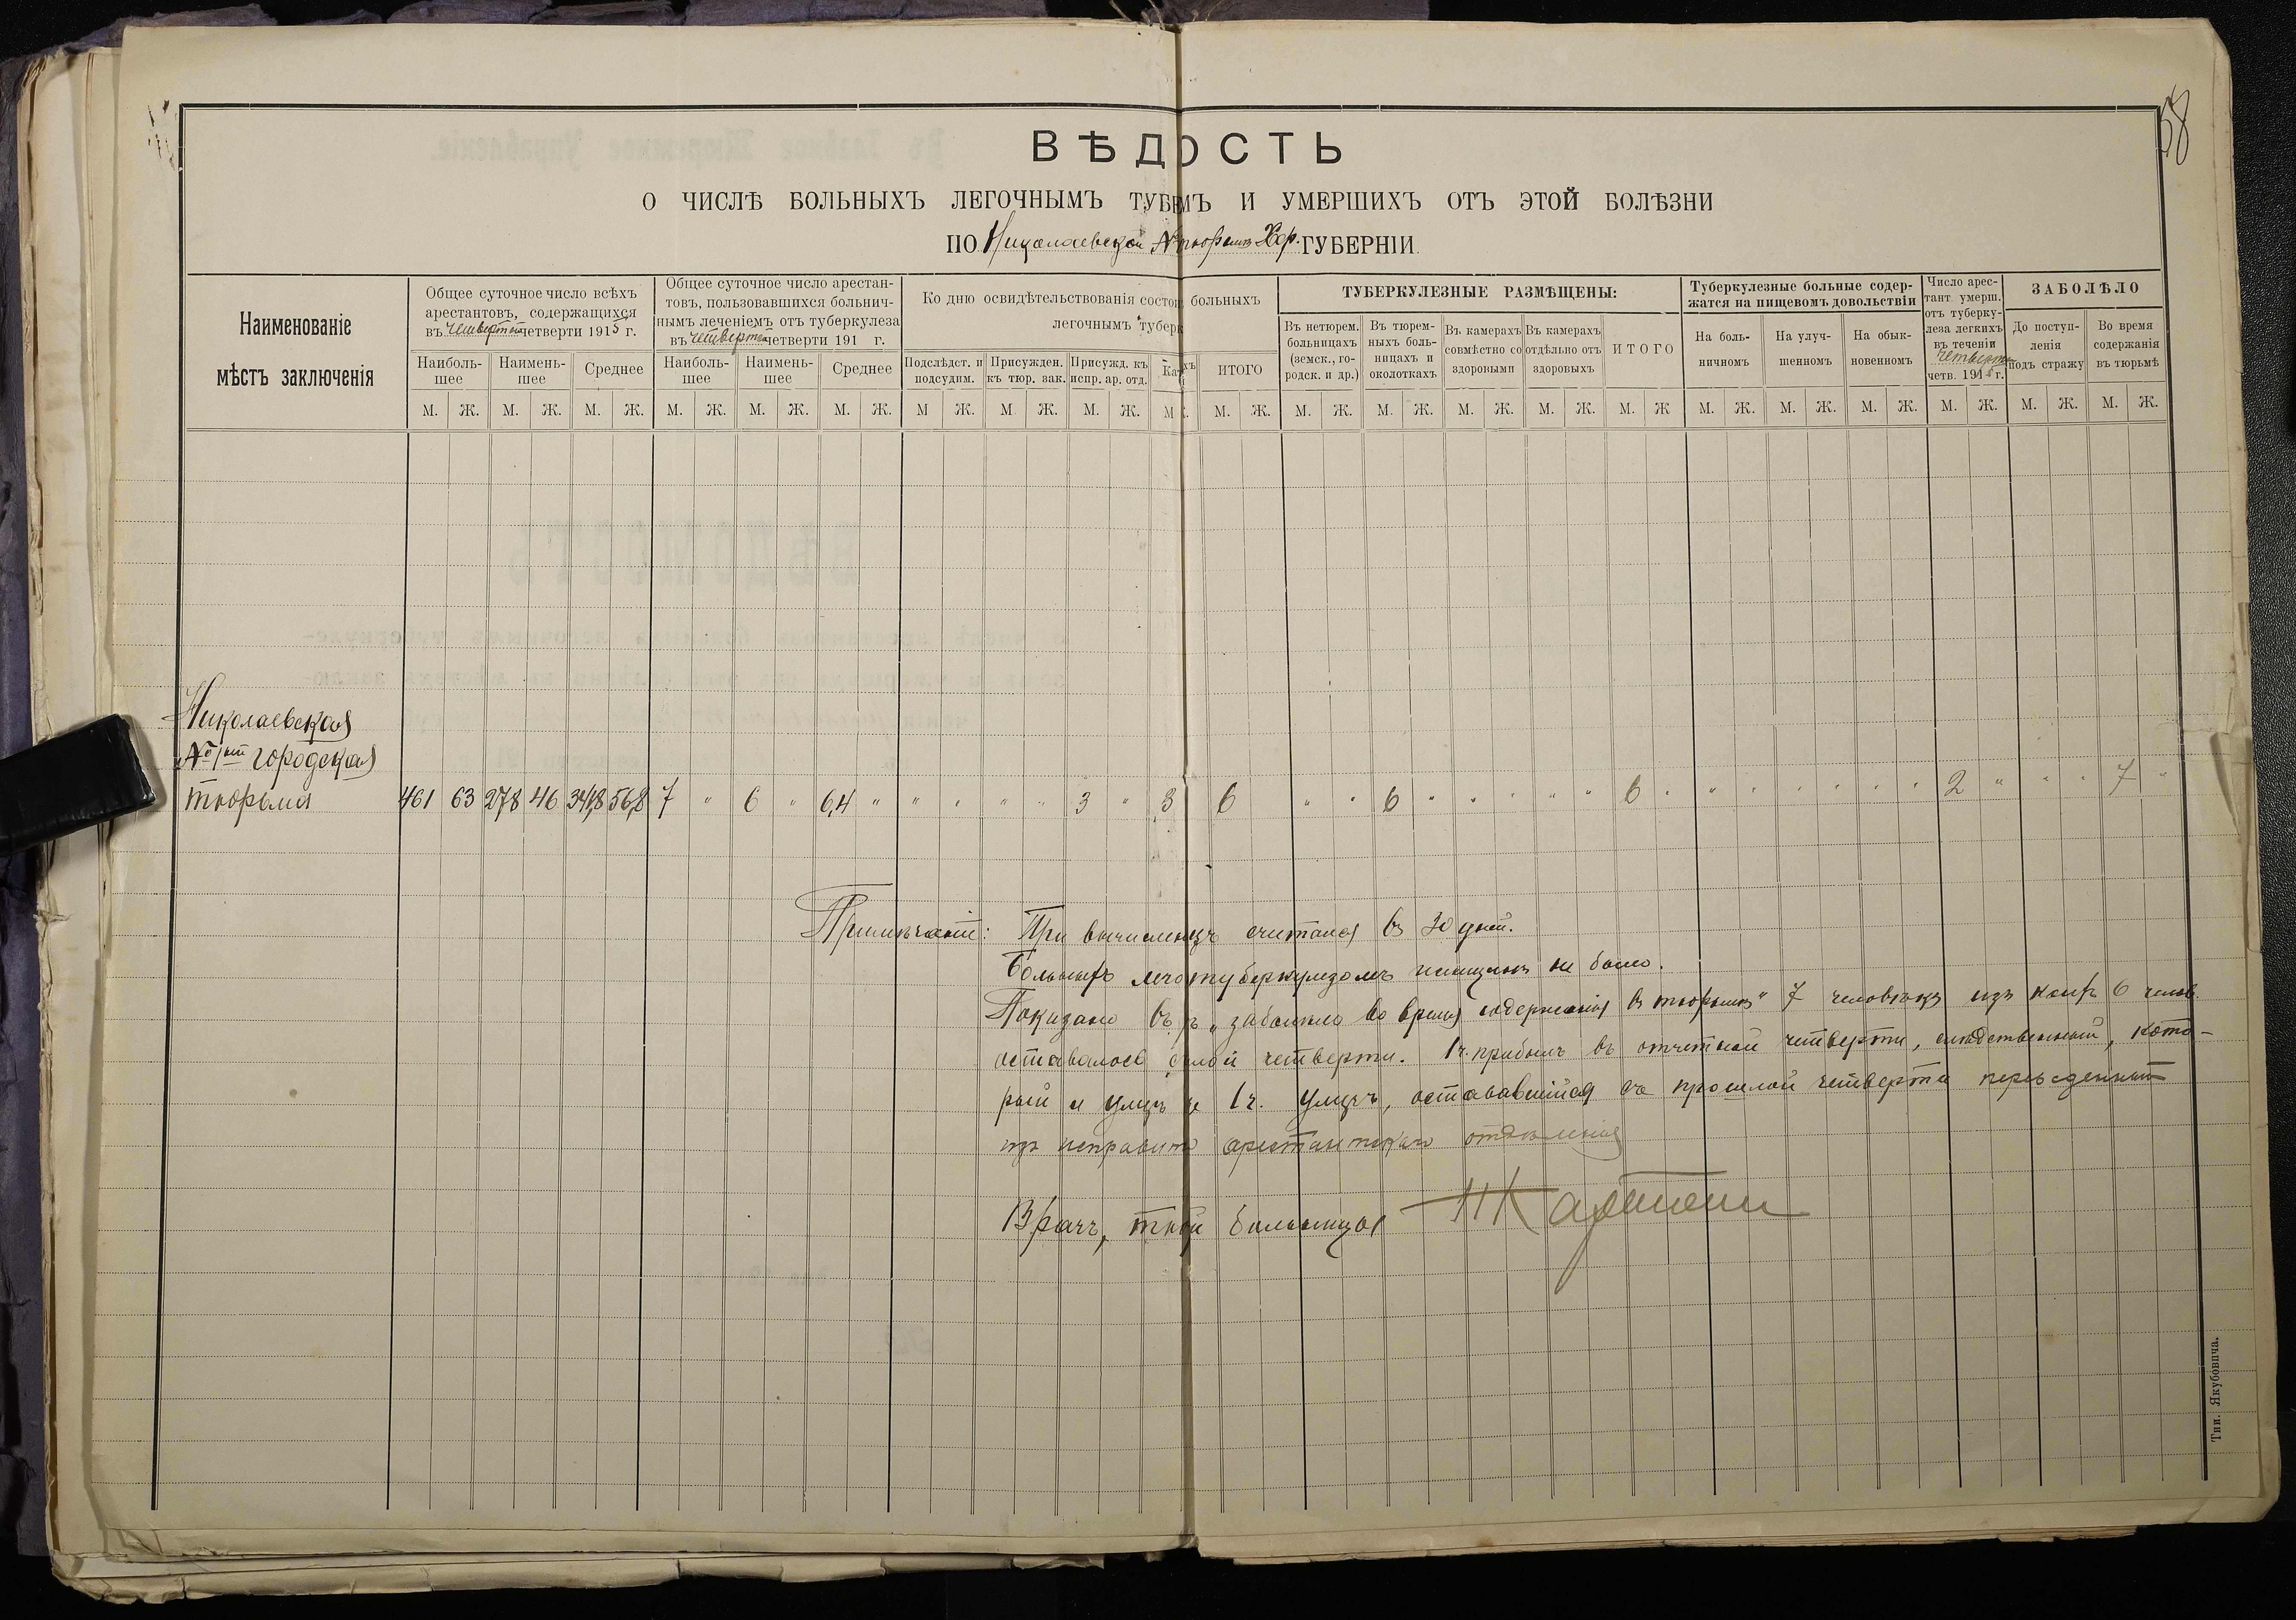 58
ВѢДОСТЬ
О ЧИСЛѢ БОЛЬНЫХЪ ЛЕГОЧНЫМЪ ТУБЕМЪ И УМЕРШИХЪ ОТЪ ЭТОЙ БОЛѢЗНИ
ПО Николаевской № тюрьмѣ Хер. ГУБЕРНІИ.
Наименованіе
мѣстъ заключенія
Общее суточное число всѣхъ
арестантовъ, содержащихся
въ четвертой четверти 1915 г.
Наиболь-
шее
Наимень-
шее
Среднее
Общее суточное число арестан-
товъ, пользовавшихся больнич-
нымъ леченіемъ отъ туберкулеза
въ четверт четверти 191 г.
Наиболь-
шее
Наимень-
шее
Среднее
Ко дню освидѣтельствованія состоя больныхъ
легочнымъ туберк
Подслѣдст. и
подсудим.
Присужден.
къ тюр. зак.
Присужд. къ
испр. ар. отд.
Кат хъ
ИТОГО
ТУБЕРКУЛЕЗНЫЕ РАЗМѢЩЕНЫ:
Въ нетюрем.
больницахъ
(земск., го-
родск. и др.)
Въ тюрем-
ныхъ боль-
ницахъ и
околоткахъ
Въ камерахъ
совмѣстно со
здоровыми
Въ камерахъ
отдѣльно отъ
здоровыхъ
ИТОГО
Туберкулезные больные содер-
жатся на пищевомъ довольствіи
На боль-
ничномъ
На улуч-
шенномъ
На обык-
новенномъ
Число арес-
тант. умерш.
отъ туберку-
леза легкихъ
въ теченіи
четверт
четв. 1915 г.
ЗАБОЛѢЛО
До поступ-
ленія
подъ стражу
Во время
содержанія
въ тюрьмѣ
М. Ж. М. Ж. М. Ж. М. Ж. М. Ж. М. Ж. М Ж. М Ж. М. Ж. М . М. Ж. М. Ж. М. Ж. М. Ж. М. Ж. М. Ж М. Ж. М. Ж. М. Ж. М. Ж. М. Ж. М. Ж.
Николаевская
№ 1ая городская
тюрьма 461 63 278 46 341,8 56,8 7 " 6 " 6,4 " " " " " 3 " 3 6 " " 6 " " " " " 6 " " " " " " " 2 " " " 7 "
Примѣчаніе: При считался въ 30 дней.
Больныхъ туберкулезомъ женщинъ не было.
Показано въ „заболѣло во время содержанія въ тюрьмѣ" 7 человѣкъ изъ коихъ 6 челов.
оставалось четверти. 1 ч. прибылъ въ отчетной четверти, слѣдственный, кото-
рый и умеръ и 1 ч. умеръ, остававшійся въ прошлой четверти переведенный
изъ арестантскаго отдѣленія
Врачъ, больницы
Тип. Якубовича.